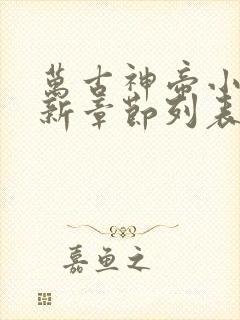 萬古神帝小
新章節列表
嘉魚之